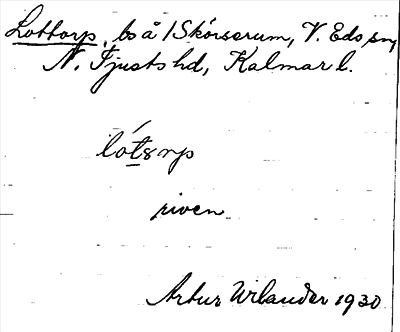 Lottorp, bs å 1 Skörserum, V. Eds sn,
N. Tjusts hd, Kalmar l.
riven
Artur Wilander 1930